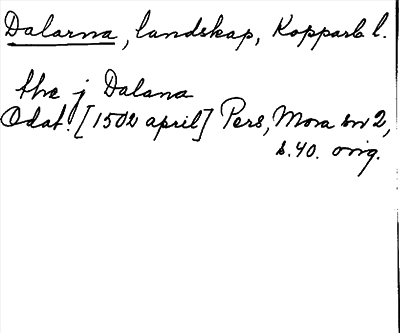 Dalarna, landskap, Kopparb l.
thr j Dalana
Odat. [1502 april] Pers, Mora sn 2,
s. 40. orig.